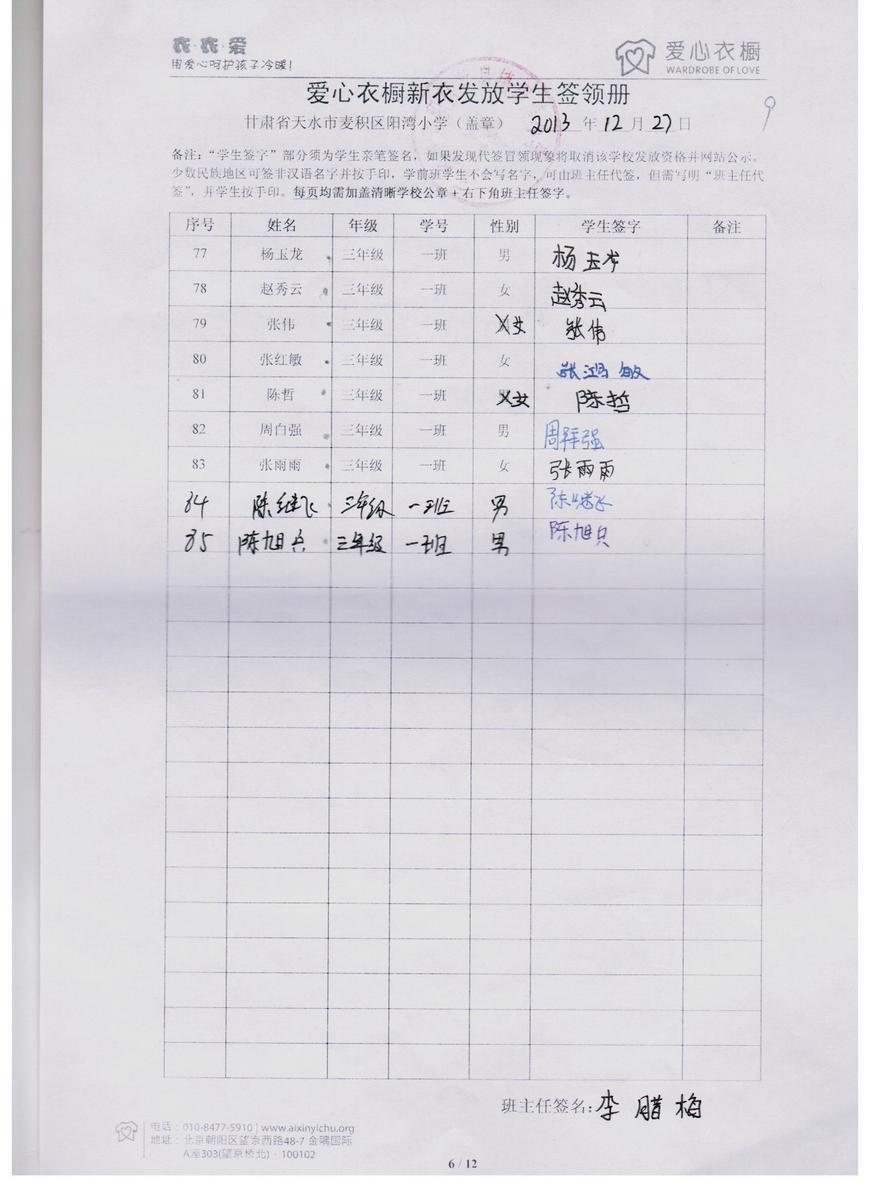 衣·衣·爱
用爱心呵护孩子冷暖!
爱心衣橱
WARDROBE OF LOVE
爱心衣橱新衣发放学生签领册
甘肃省天水市麦积区阳湾小学（盖章） 2013 年 12 月 27 日
9
备注：“学生签字”部分须为学生亲笔签名，如果发现代签冒领现象将取消该学校发放资格并网站公示。
少数民族地区可签非汉语名字并按手印，学前班学生不会写名字，可由班主任代签，但需写明“班主任代
签”，并学生按手印。每页均需加盖清晰学校公章+右下角班主任签字。
序号 姓名 年级 学号 性别 学生签字 备注
77 杨玉龙 三年级 一班 男 杨玉龙
78 赵秀云 三年级 一班 女 赵秀云
79 张伟 三年级 一班 女 张伟
80 张红敏 三年级 一班 女 张鸿敏
81 陈哲 三年级 一班 女 陈哲
82 周白强 三年级 一班 男 周 强
83 张雨雨 三年级 一班 女 张雨雨
84 陈继飞 三年级 一班 男 陈继飞
85 陈旭兵 三年级 一班 男 陈旭兵
班主任签名: 李腊梅
电话：010-8477-5910 | www.aixinyichu.org
地址：北京朝阳区望京西路48-7 金隅国际
A座303(望京桥北)·100102
6 / 12